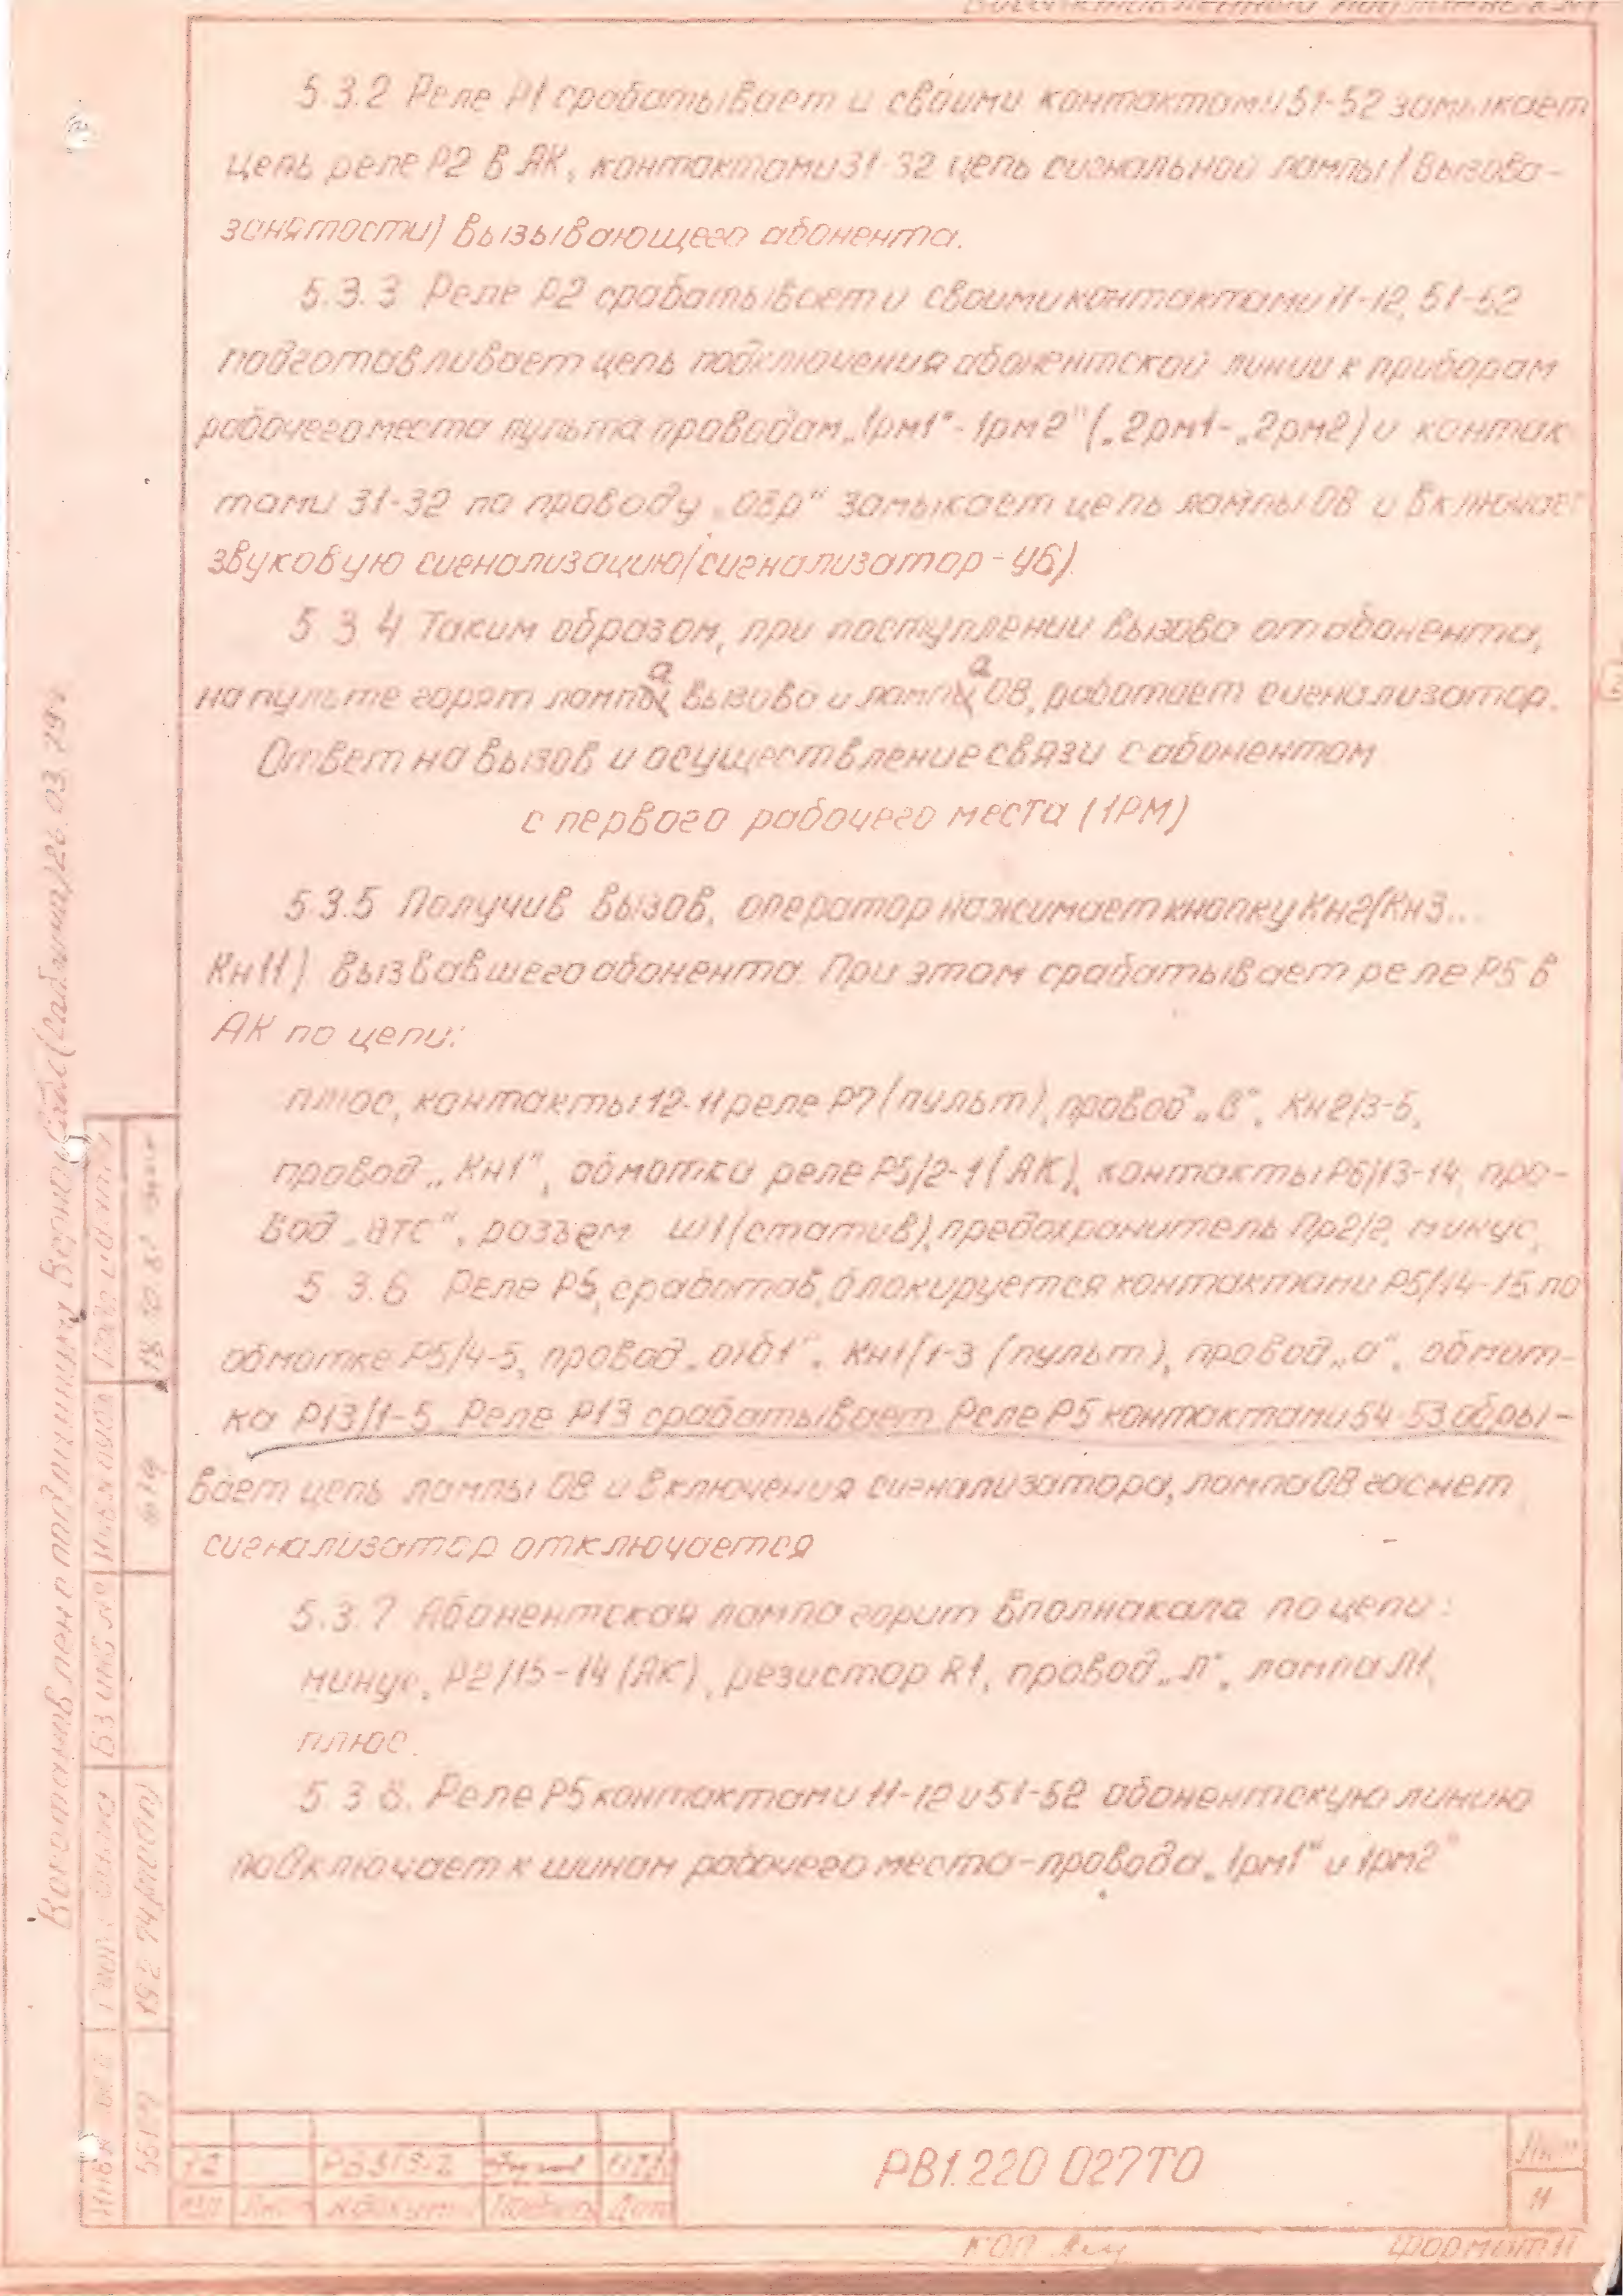 5.3.2 Реле Р1 срабатывает и своими контактами 51-52 замыкает
цепь реле Р2 в АК, контактами 31-32 цепь сигнальной лампы (вызова-
занятости) вызывающего абонента.
5.3.3 Реле Р2 срабатывает и своими контактами 11-12, 51-52
подготавливает цепь подключения абонентской линии к приборам
рабочего места пульта проводам „1рм1"- 1рм2" („2рм1-„2рм2) и контак
тами 31-32 по проводу „ОЗР" замыкает цепь лампы ОВ и включает
звуковую сигнализацию (сигнализатор - У6).
5.3.4 Таким образом, при поступлении вызова от абонента,
на пульте горят лампа вызова и лампа ОВ, работает сигнализатор.
Ответ на вызов и осуществление связи с абонентом
с первого рабочего места (1РМ)
5.3.5 Получив вызов, оператор нажимает кнопку Кн2 (Кн3...
Кн11) вызвавшего абонента. При этом срабатывает реле Р5 в
АК по цепи:
плюс, контакты 12-11 реле Р7 (пульт), провод „В", Кн2/3-5,
провод „Кн1", обмотки реле Р5/2-1 (АК), контакты Р6/13-14, про-
вод „атс", разъем Ш1 (статив), предохранитель Пр2/2, минус,
5.3.6 Реле Р5, сработав, блокируется контактами Р5/14-15 по
обмотке Р5/4-5, провод Кн1/1-3 (пульт), провод „а", обмот-
ка Р13/1-5. Реле Р13 срабатывает. Реле Р5 контактами 54-53 обры-
вает цепь лампы ОВ и включения сигнализатора, лампа ОВ гаснет
сигнализатор отключается
5.3.7 Абонентская лампа горит вполнакала по цепи:
минус, Р2/15-14 (АК), резистор R1, провод „Л", лампа Л1,
плюс.
5.3.8. Реле Р5 контактами 11-12 и 51-52 абонентскую линию
подключает к шинам рабочего места-провода „1рм1" и 1рм2"
РВ1.220 027ТО
Лист
11
Изм Лист № докум Дата
Формат 11